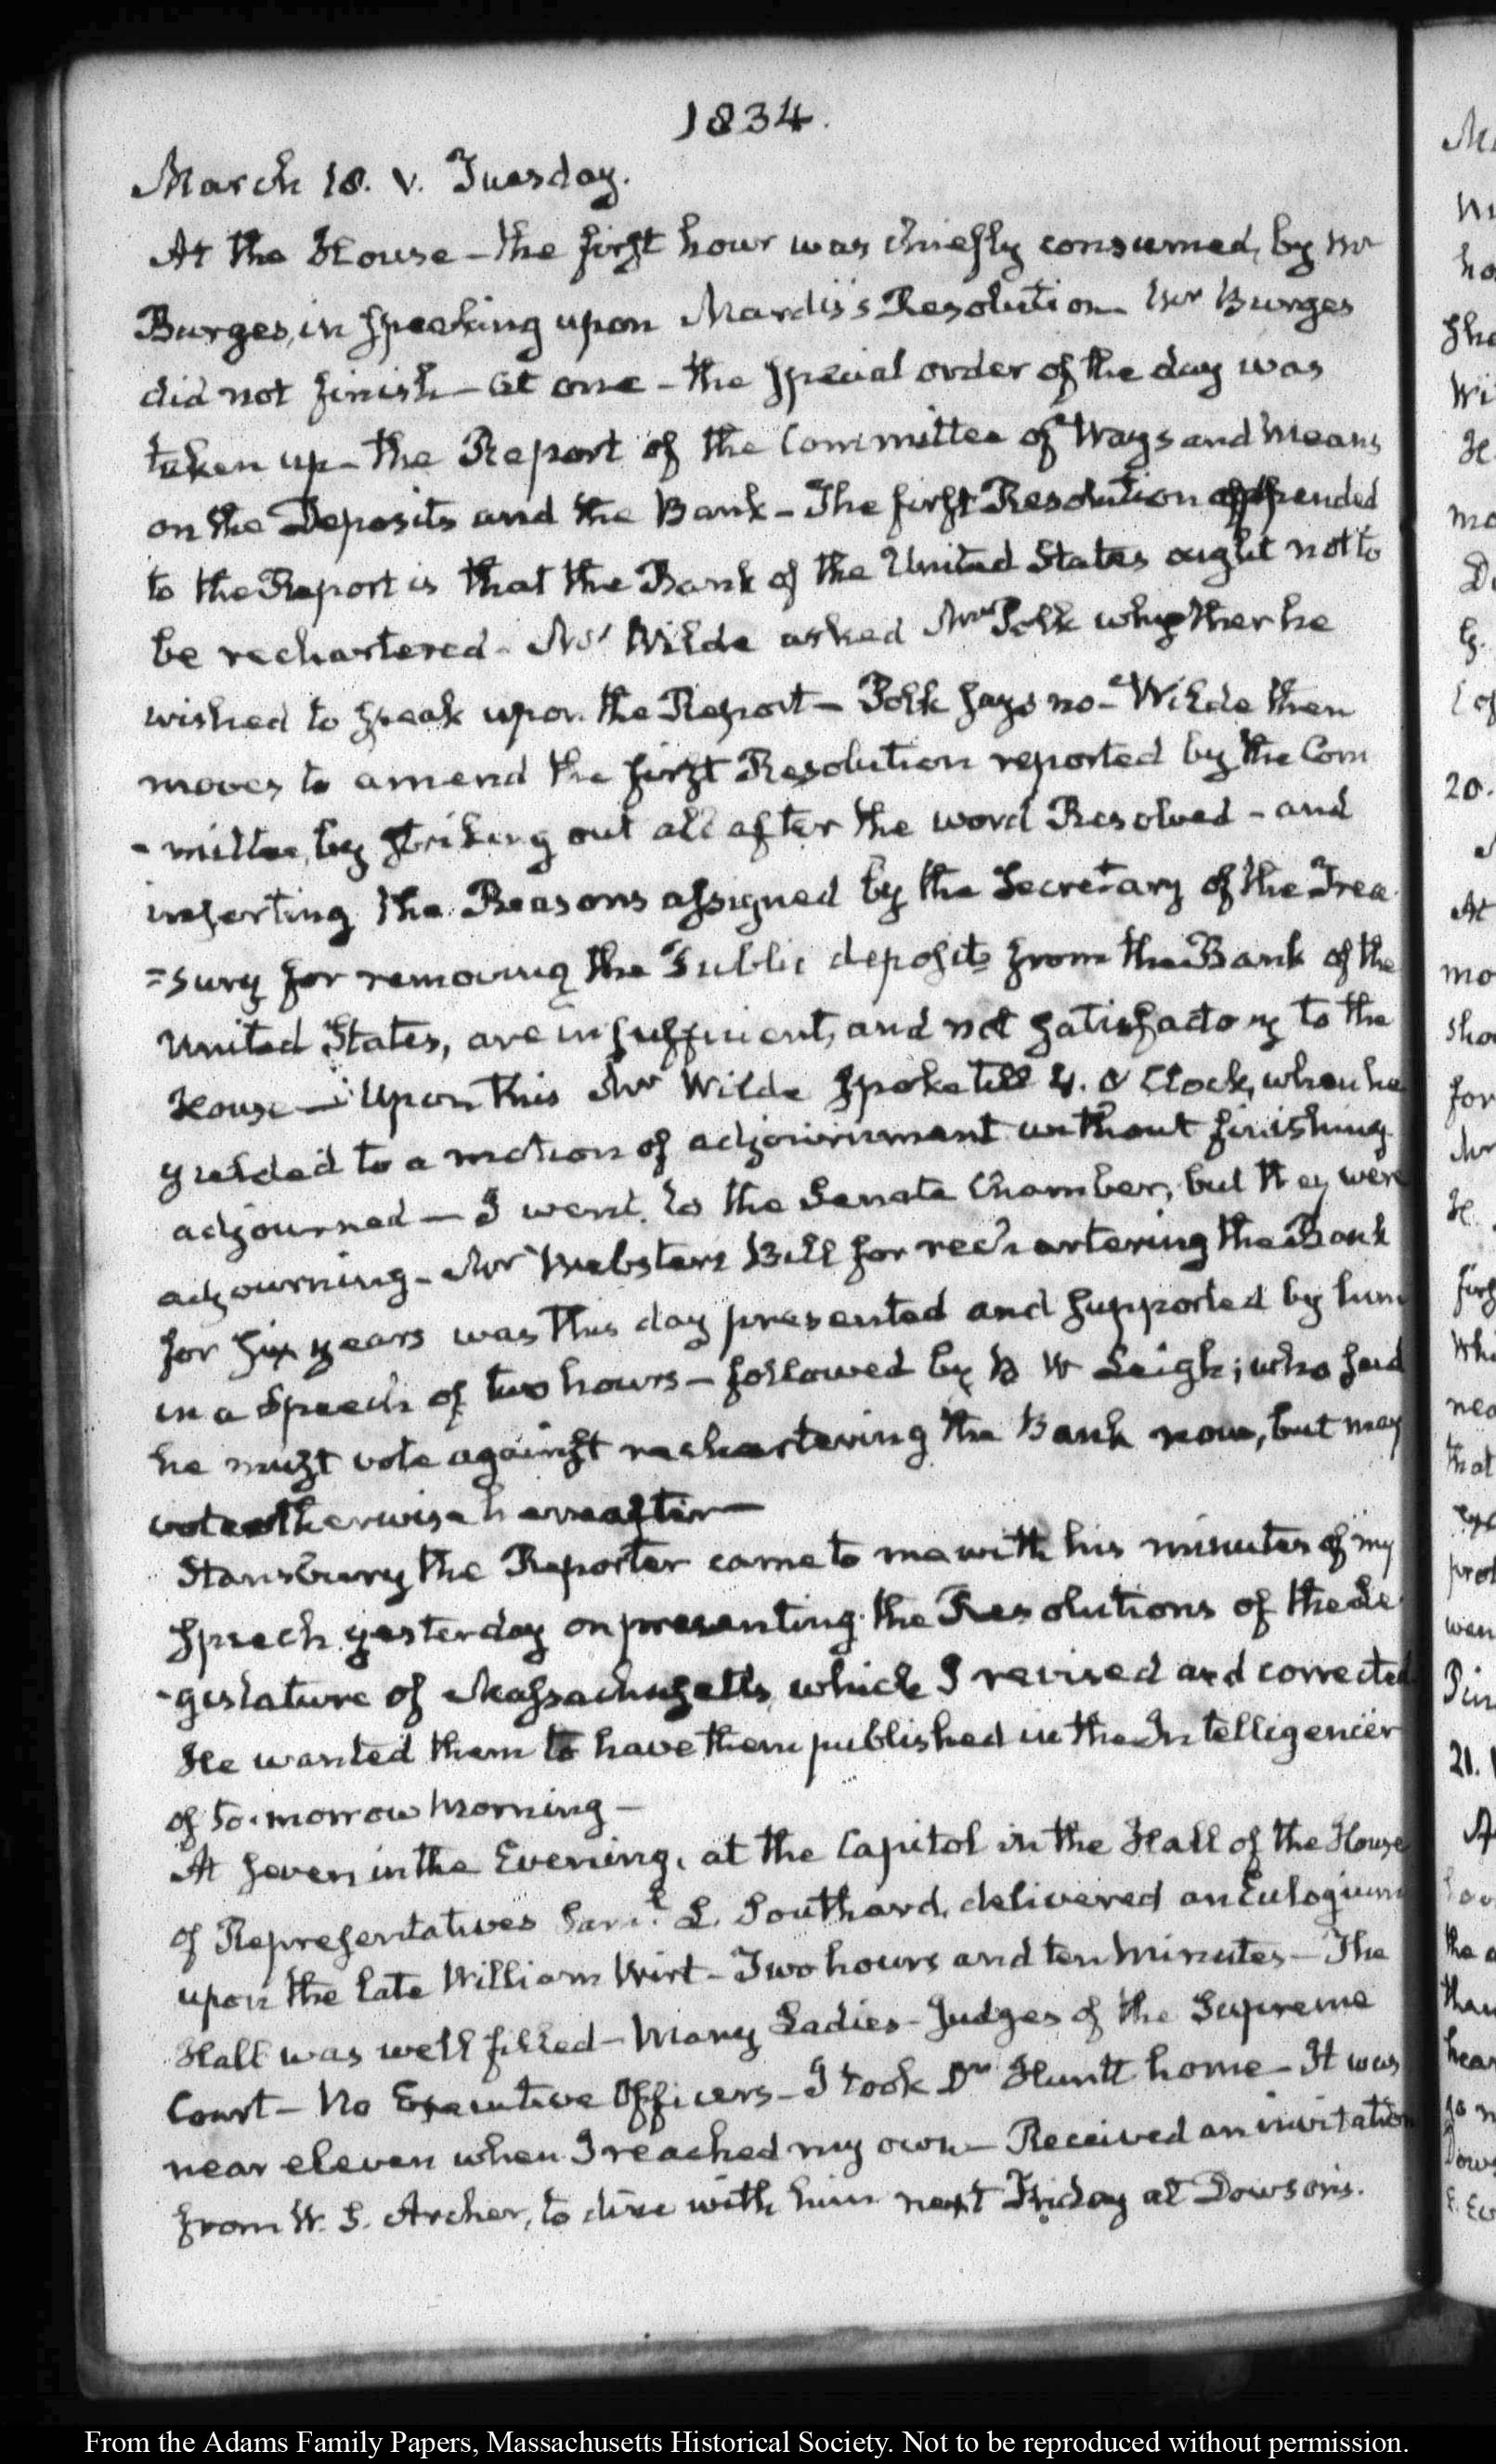 1834.
March 18. V. Tuesday.
At the House – the first hour was chiefly consumed, by Mr
Burges, in speaking upon Mardis's Resolution – Mr Burges
did not finish – At one – the special order of the day was
taken up – the Report of the Committee of Ways and Means
on the Deposits and the Bank – The first Resolution appended
to the Report is that the Bank of the United States ought not to
be rechartered – Mr Wilde asked Mr Polk whether he
wished to speak upon the Report – Polk says no – Wilde then
moves to amend the first Resolution reported by the Com
- mittee, by striking out all after the word Resolved – and
inserting the Reasons assigned by the Secretary of the Trea
=sury for removing the Public deposits from the Bank of the
United States, are insufficient, and not satisfactory to the
House – Upon this Mr Wilde spoke till 4. O'Clock, when he
yielded to a motion of adjournment without finishing
adjourned – I went to the Senate Chamber, but they were
adjourning – Mr Webster's Bill for rechartering the Bank
for six years was this day presented and supported by him
in a Speech of two hours – followed by B W Leigh; who said
he must vote against rechartering the Bank now, but may
vote otherwise hereafter –
Stansbury the Reporter came to me with his minutes of my
speech yesterday on presenting the Resolutions of the Le
-gislature of Massachusetts, which I revised and corrected
He wanted them to have them published in the Intelligencer
of to-morrow Morning –
At seven in the Evening, at the Capitol in the Hall of the House
of Representatives Saml. L. Southard, delivered an Eulogium
upon the late William Wirt – Two hours and ten Minutes – The
Hall was well filled – Many Ladies – Judges of the Supreme
Court – No Executive Officers – I took Dr Huntt home – It was
near eleven when I reached my own – Received an invitation
from W. S. Archer, to dine with him next Friday at Dowson's.
From the Adams Family Papers, Massachusetts Historical Society. Not to be reproduced without permission.